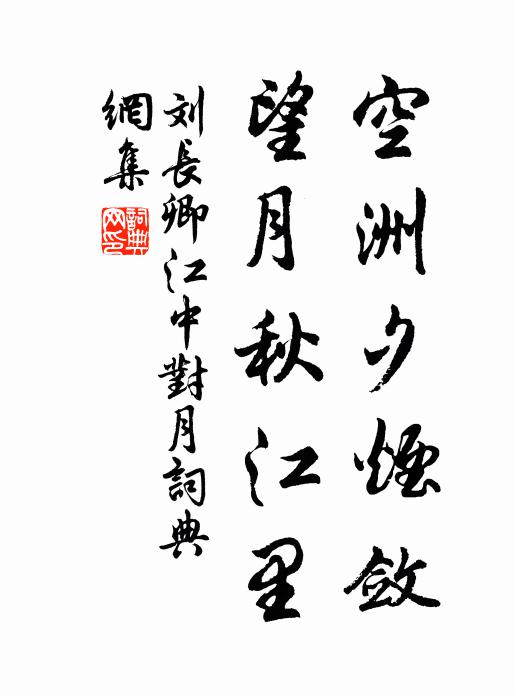 空洲夕煙斂
望月秋江里
刘長卿江中對月詞典
網集
詞典網印